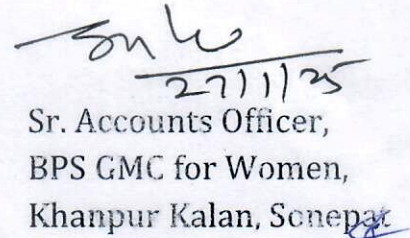 27/1/25
Sr. Accounts Officer,
BPS GMC for Women,
Khanpur Kalan, Sonepat